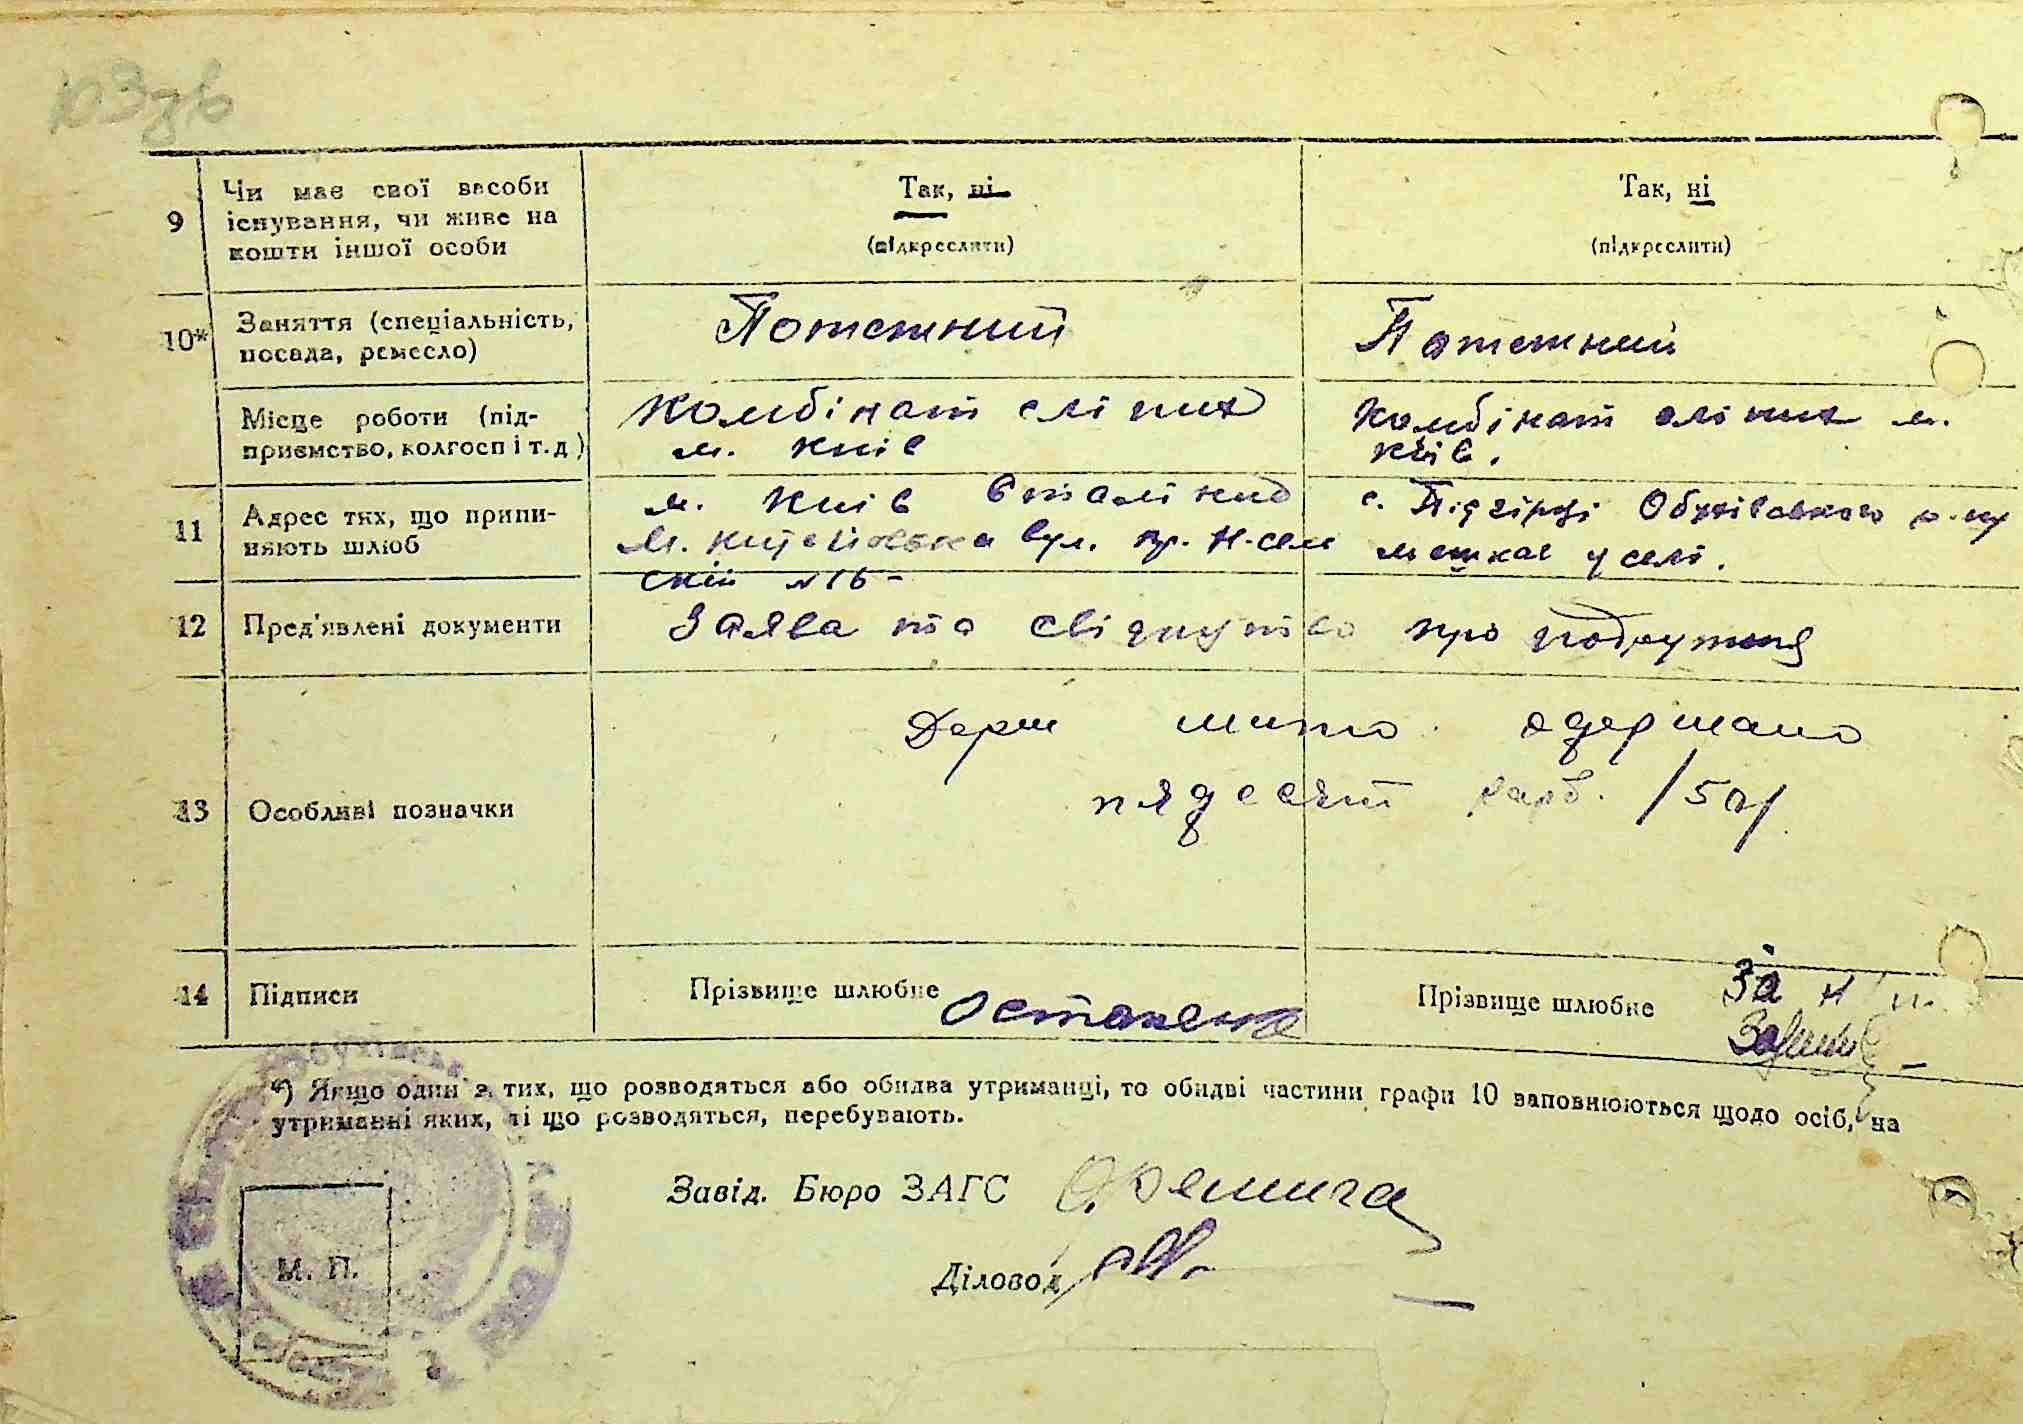 103зв
9 Чи має свої засоби існування, чи живе на кошти іншої особи
Так, ні
(підкреслити)
Так, ні
(підкреслити)
10* Заняття (спеціальність, посада, ремесло)
Потежний
Потежний
Місце роботи (підприємство, колгосп і т.д)
Комбінат сліпих
м. Київ
Комбінат сліпих м.
Київ.
11 Адрес тих, що припиняють шлюб
м. Київ Сталінка
М. Китаївська вул. пр.
скій №16-
с. Підгірці Обухівського р-ну
мешкає у селі.
12 Пред'явлені документи
Заява та свідоцтво про подружжя
13 Особливі позначки
Держ мито одержано
пядесят карб. /50/
14 Підписи
Прізвище шлюбне
Прізвище шлюбне
За
*) Якщо один з тих, що розводяться або обидва утриманці, то обидві частини графи 10 заповнюються щодо осіб, на
утриманні яких, ті що розводяться, перебувають.
Завід. Бюро ЗАГС
Діловод
М. П.